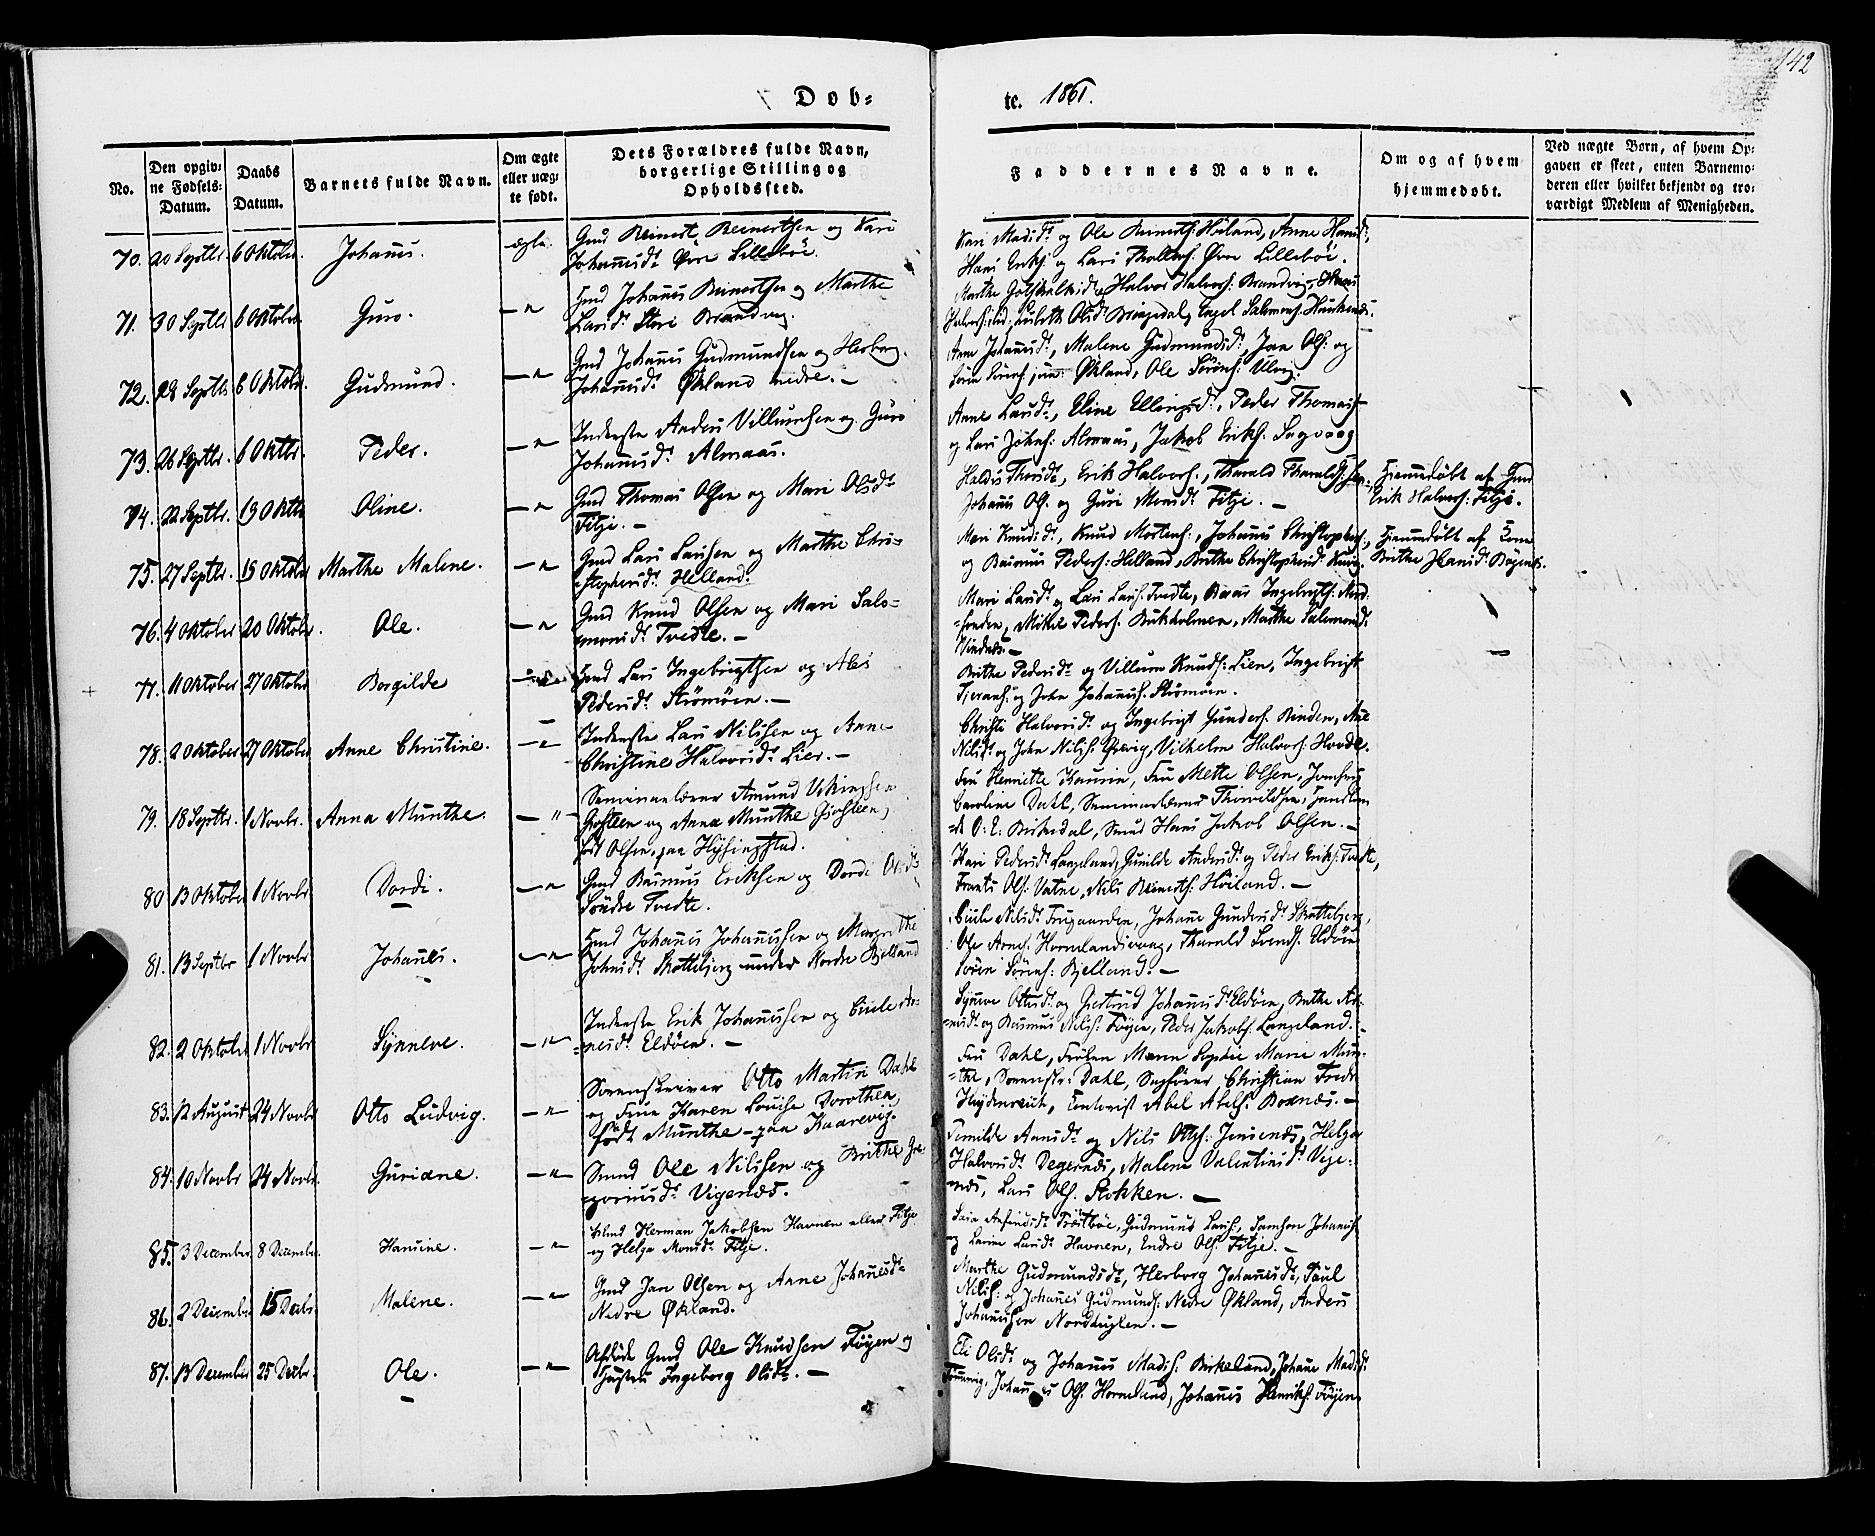 142
Døb-
te. 1861.
No.
Den opgiv-
ne Fødsels-
Datum.
Daabs
Datum.
Barnets fulde Navn.
Om ægte
eller uæg-
te født.
Dets Forældres fulde Navn,
borgerlige Stilling og
Opholdssted.
Faddernes Navne.
Om og af hvem
hjemmedøbt.
Ved uægte Børn, af hvem Op-
gaven er skeet, enten Barnemo-
deren eller hvilket bekjendt og tro-
værdigt Medlem af Menigheden.
70. 20 Septbr. 6 Oktober Johañes. ægte. Gmd Reinert Reinertsen og Kari
Johañesdr Øvre Lillebøe.
Kari Madsdr og Ole Reinerts: Høiland, Anne Hansdr,
Hans Eriks. og Lars Øvre Lillebøe.
71. 30 Septbr 6 Oktober Guro. —"— Gmd Johañes Reinertsen og Marthe
Larsdr Store Brandvig.
Marthe Halvor Halvors. Brandvig,
Olsdr Bringedal, Engel Salamons.
72. 28 Septbr 6 Oktober. Gudmund. —"— Gmd Johañes Gudmundsen og Herborg
Johañesdr Økland nedre. —
Anne Johañesdr, Malene Gudmundsdr, Jan Ols: og
Økland, Ole Sørens: Ulvig.
73. 26 Septbr. 6 Oktbr. Peder. —"— Inderste Anders Villumsen og Guro
Johañesdr Almaas.
Anne Larsdr, Eline Ellingsdr, Peder Thomas-
og Lars Johns: Almaas, Jakob Eriks. Sagvaag
74. 22 Septbr. 13 Oktbr Oline. —"— Gmd Thomas Olsen og Mari Olsdr
Fitje. —
Erik Halvors., Tharald Tharalds:
Johañes Ols. og Guri Monsdr Fitje. —
Hjemmedøbt af Gmd
Erik Halvors: Fitje.
75. 27 Septbr. 13 Oktober Marthe Malene. —"— Gmd Lars Larsen og Marthe Chri-
stophersdr Helland.
Mari Knudsdr, Knud Mortens., Johañes Christophers.,
og Rasmus Peders: Helland, Brithe Christophersdr
Hjemmedøbt af Kone
Brithe Hansdr
76. 4 Oktober 20 Oktober. Ole. —"— Gmd Knud Olsen og Mari Salo-
monsdr Tvedte. —
Mari Larsdr og Lars Lars. Tvedte, Ingebrigts:
Mikel Peders. Bukholmen, Marthe Salomonsdr
Vindenes. —
77. 11 Oktober 27 Oktober Borgilde —"— Gmd Lars Ingebrigtsen og
Pedersdr Strømøen. —
Brithe Pedersdr og Villum Knuds: Lien, Ingebrigt
og John Johañes. Strømøen.
78. 2 Oktober 27 Oktober Anne Christine. —"— Inderste Lars Nilssen og Anne
Christine Halvorsdr Lier. —
Christi Halvorsdr og Ingebrigt Gunders.
Nilsdr og John Nils. Vilhelm Halvors:
79. 18 Septbr. 1 Novbr. Anna Munthe. —"— Seminarlærer Amund Vikingsen
Gjosteen og Anna Munthe Gjosteen,
født Olsen, paa Hysingstad.
Fru Henriette Kaurin, Fru Mette Olsen, Jomfru
Caroline Dahl, Seminarlærer
O: E: Birkedal, Hans Jakob Olsen. —
80 13 Oktober 1 Novbr Dordi. —"— Gmd Rasmus Eriksen og Dordi Olsdr
Søndre Tvedte.
Kari Pedersdr Langeland, Gunilde Andersdr og Peder Eriks. Tvedte,
Ols. Vatne, Nils Reinerts: Høiland. —
81. 13 Septbr 1 Novbr Johañes. —"— Gmd Johañes Johañessen og Margrethe
Johnsdr Skottebjerg under Nordre Bjelland
Nilsdr Johañe Gundersdr Skottebjerg,
Ole Arnes. Hornelandsvaag, Tharald Svends. Eldøen
Søren Sørens: Bjelland. —
82. 2 Oktober 1 Novbr Synneve. —"— Inderste Erik Johañessen og
Eldøen. —
Synneve Olsdr og Giertrud Johañesdr Eldøen, Brithe
og Rasmus Nils. Føyen, Peder Jakobs. Langeland.
83. 12 August 24 Novbr Otto Ludvig. —"— Sorenskriver Otto Martin Dahl
og Frue Karen Louise Dorothea
født Munthe — paa Kaarevig.
Fru Dahl, Frøken Maren Sophie Marie Mun-
the, Sorenskr: Dahl, Sagfører Christian Fredr
Heydenreich, Contorist Abel Abels. —
84. 10 Novbr 24 Novbr. Guriane. —"— Ole Nilssen og Brithe Gre-
goriusdr Vigenæs.
og Nils Helga
Halvorsdr Degernæs, Malene Valentinsdr Vige-
næs, Lars Ols. Stokken. —
85. 3 December 8 December. Hansine. —"— Herman Jakobsen Havnen eller Fitje
og Helga Monsdr Fitje.
Gudmund Lars., Samson Johañes.
og Larsdr Havnen, Endre Ols. Fitje. —
86. 2 December 15 Decbr. Malene. —"— Gmd Jan Olsen og Anne Johañesdr
Nedre Økland.
Marthe Gudmundsdr, Herborg Johañesdr, Paul
Nils: og Johañes Gudmunds: Nedre Økland, Anders
Johañessen Nordhuglen. —
87. 13 December 25 Decbr. Ole. —"— Afskede Gmd Ole Knudsen Føyen og
Hustru Ingeborg Olsdr. —
Eli Olsdr og Johañes Mads: Birkeland, Johañe Madsdr
Johañes Ols. Horneland, Johañes Henriks. Føyen